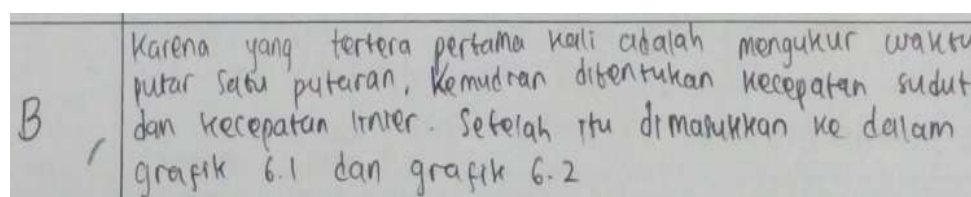 Karena yang tertera pertama kali adalah mengukur waktu
putar satu putaran, kemudian ditentukan kecepatan sudut
B, dan kecepatan linier. Setelah itu dimasukkan ke dalam
grafik 6.1 dan grafik 6.2